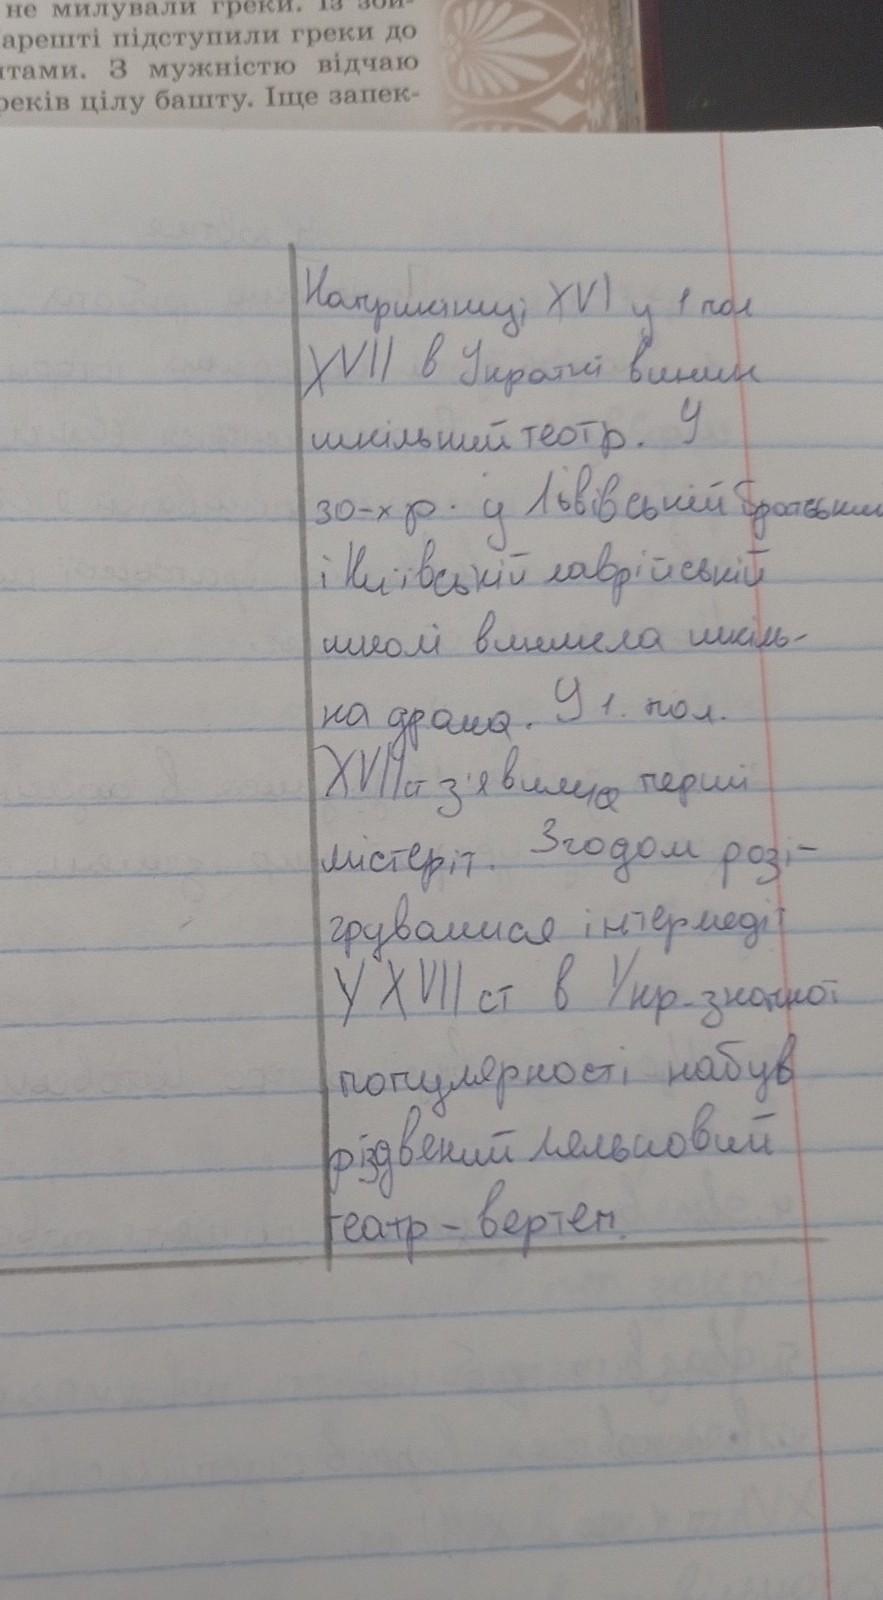 не милували греки. Із зби-
арешті підступили греки до
нтами. З мужністю відчаю
реків цілу башту. Іще запек-
Наприкінці XVI у 1 пол
XVII в Україні виник
шкільний театр. У
30-х р. у Львівській братській
і Київській лаврійській
школі виникла шкіль-
на драма. У 1. пол.
XVII ст з'явилися перші
містерії. Згодом розі-
грувалися інтермедії
У XVII ст в Укр. значної
популярності набув
різдвяний ляльковий
театр - вертеп.